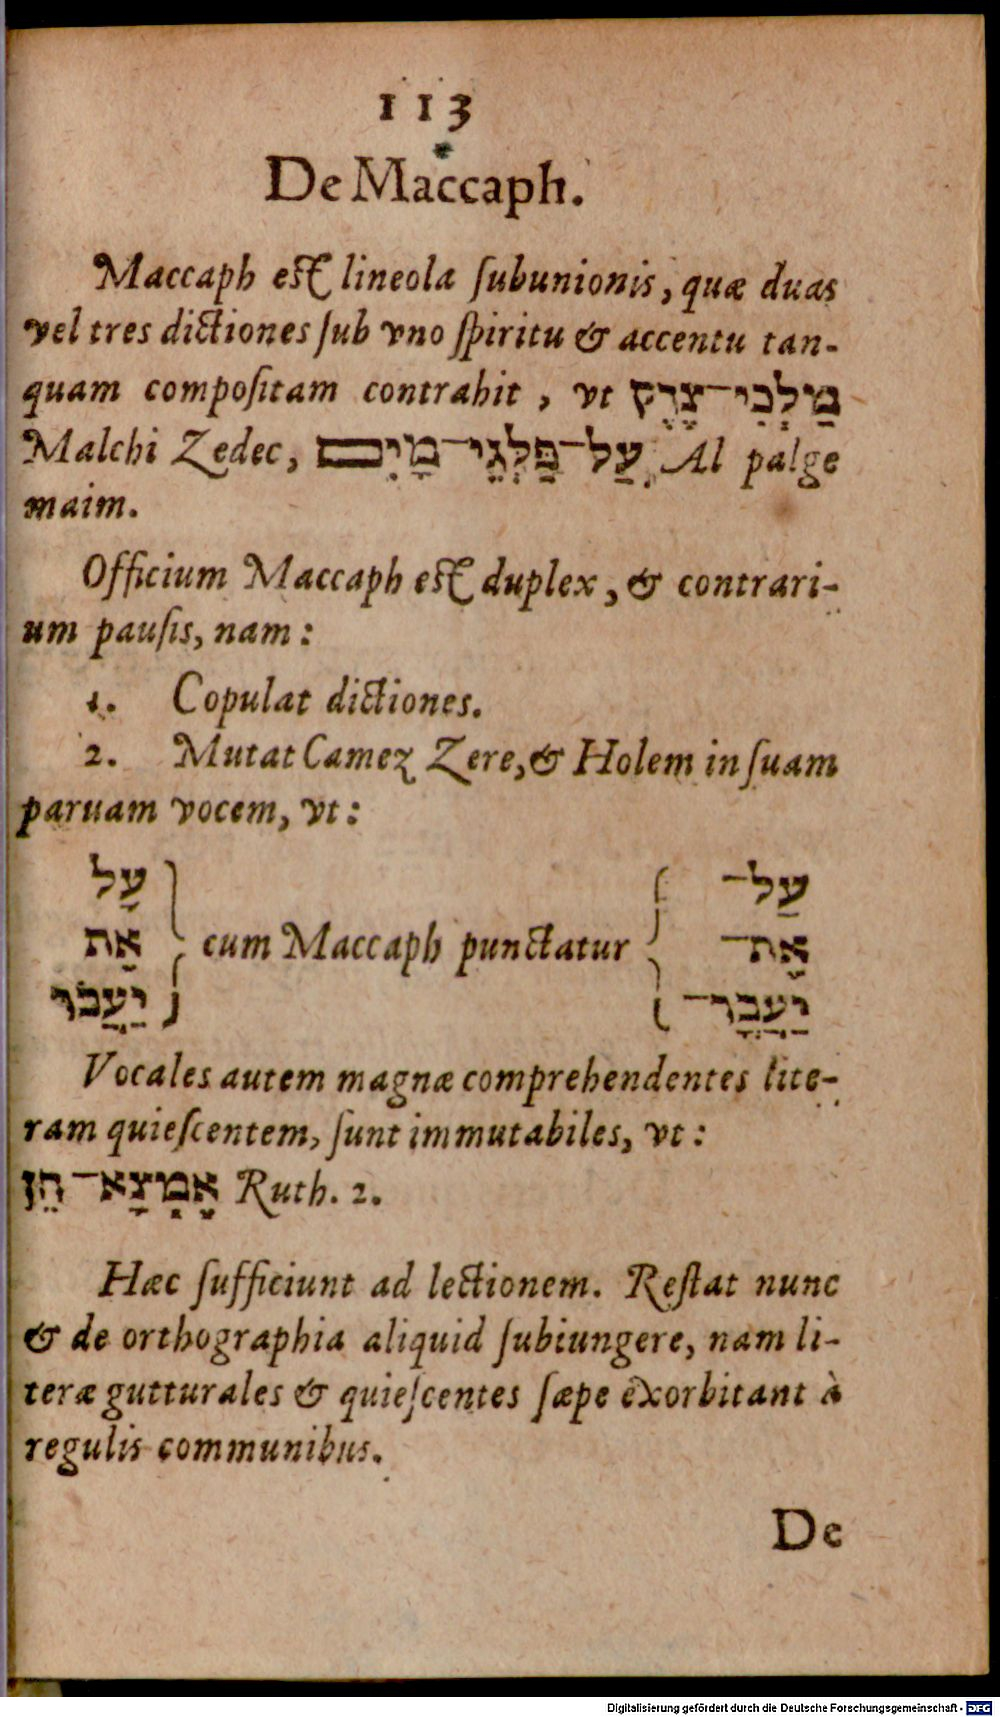 113
De Maccaph.
Maccaph est lineola ſubunionis, quæ duas
vel tres dictiones ſub vno ſpiritu & accentu tan-
quam compoſitam contrahit, vt מַלְכִּי־צֶדֶק
Malchi Zedec, עַל־פַּלְגֵי־מָיִם Al palge
maim.
Officium Maccaph est duplex, & contrari-
um pauſis, nam:
1. Copulat dictiones.
2. Mutat Camez Zere, & Holem in ſuam
paruam vocem, vt:
עָל
אֵת
יַעֲבֹר
cum Maccaph punctatur
עַל־
אֶת־
יַעֲבָר־
Vocales autem magnæ comprehendentes lite-
ram quieſcentem, ſunt immutabiles, vt:
אֶמְצָא־חֵן Ruth. 2.
Hæc ſufficiunt ad lectionem. Reſtat nunc
& de orthographia aliquid ſubiungere, nam li-
teræ gutturales & quieſcentes ſæpe exorbitant à
regulis communibus.
De
Digitalisierung gefördert durch die Deutsche Forschungsgemeinschaft - DFG